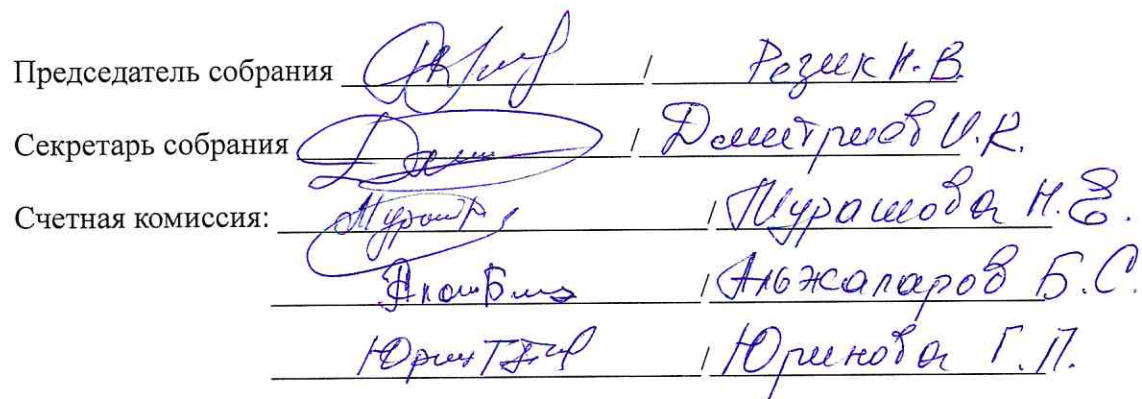 Председатель собрания / Резик Н. В.
Секретарь собрания / Дмитриев И. К.
Счетная комиссия: / Мурашова Н. Е.
/ Альжапаров Б. С.
/ Юринова Г. П.